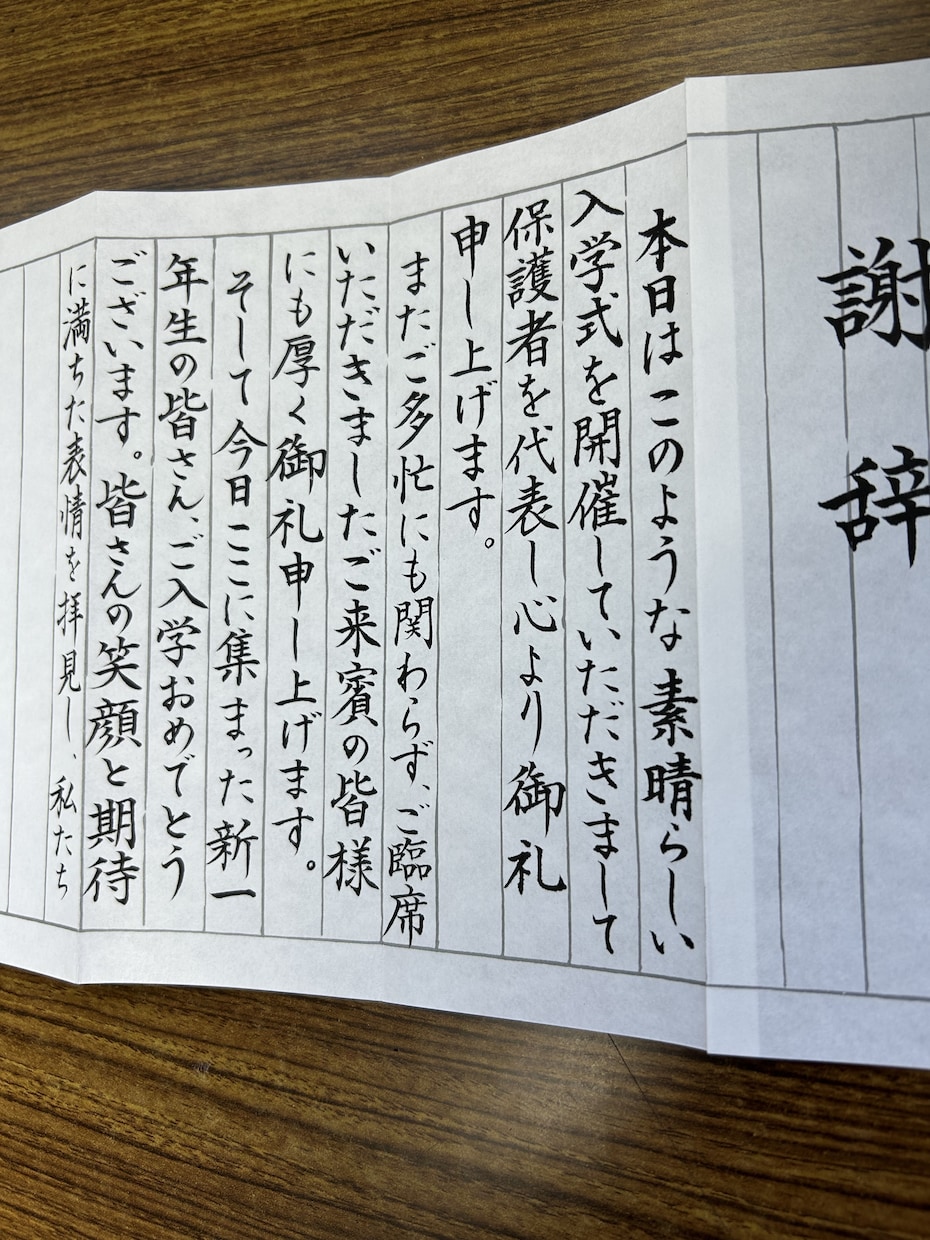 謝辞
本日はこのような素晴らしい
入学式を開催していただきまして
保護者を代表し心より御礼
申し上げます。
まだご多忙にも関わらず、ご臨席
いただきましたご来賓の皆様
にも厚く御礼申し上げます。
そして今日ここに集まった新一
年生の皆さん、ご入学おめでとう
ございます。皆さんの笑顔と期待
に満ちた表情を拝見し、私たち